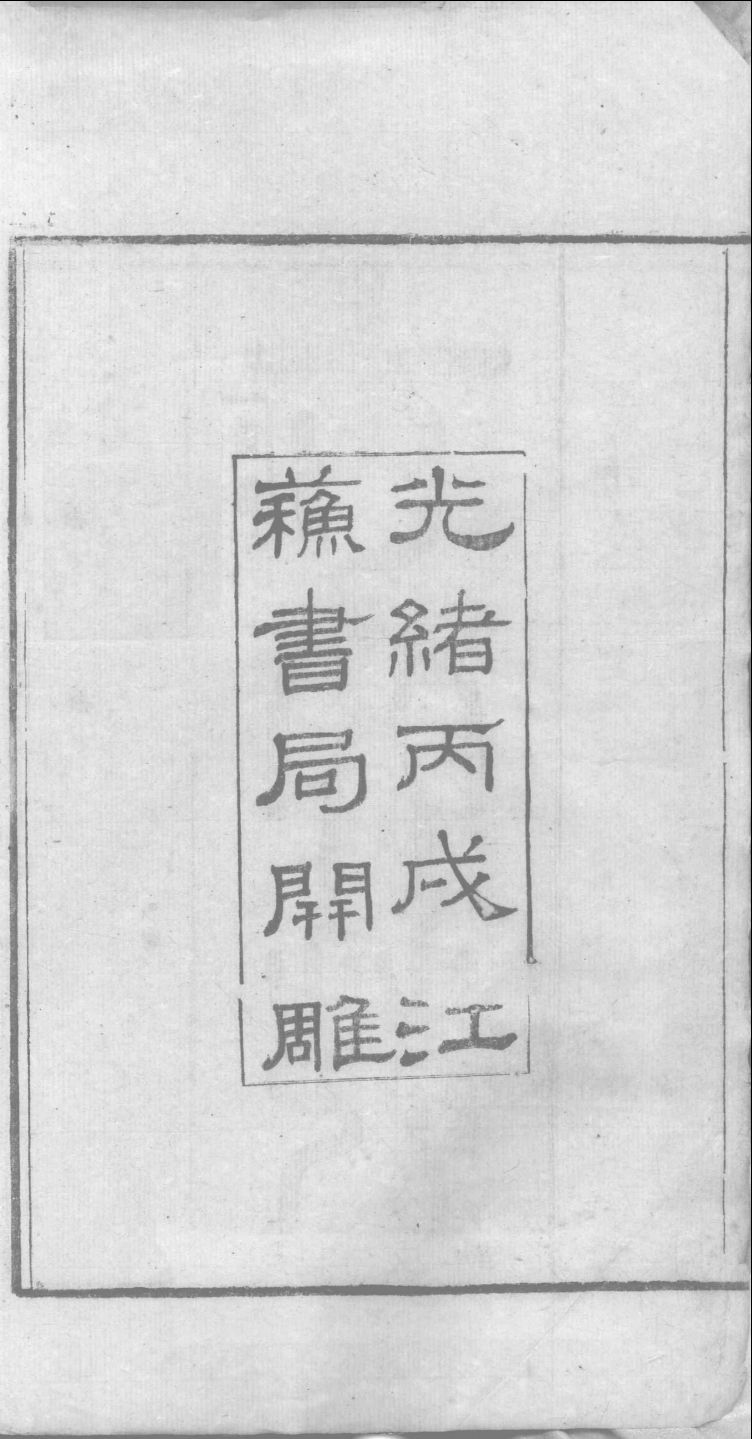 光緒丙戌江
蘇書局開雕